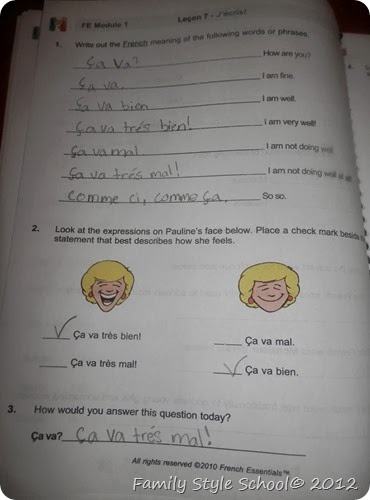 FE Module 1 Leçon 7 - J'écris!
1. Write out the French meaning of the following words or phrases.
Ça va? How are you?
Ça va. I am fine.
Ça va bien I am well.
Ça va trés bien! I am very well!
Ça va mal I am not doing well
Ça va trés mal! I am not doing well at all.
Comme ci, comme ça, So so.
2. Look at the expressions on Pauline's face below. Place a check mark beside
statement that best describes how she feels.
Ça va très bien! Ça va mal.
Ça va très mal! Ça va bien.
3. How would you answer this question today?
Ça va? Ça va trés mal!
All rights reserved ©2010 French Essentials™.
Family Style School© 2012